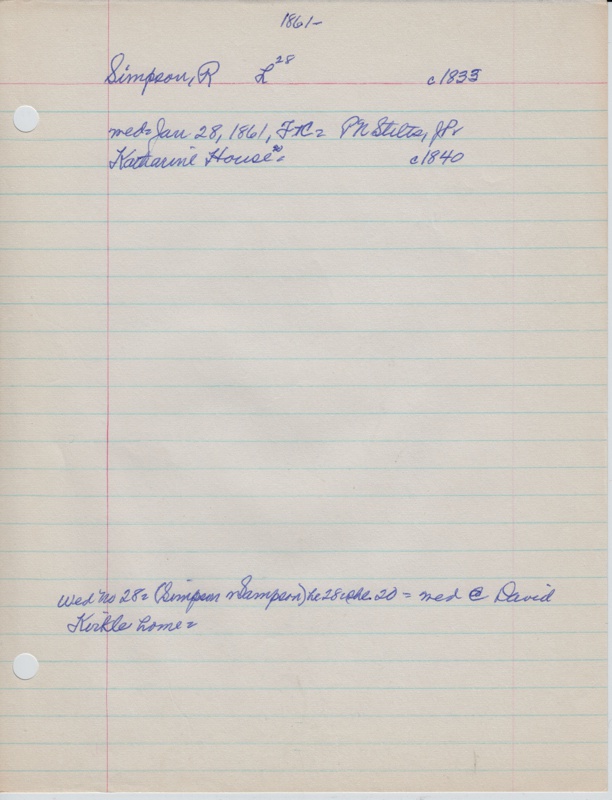 1861-
Simpson, R L 28 c1833
wed= Jan 28, 1861, = PN Stilts, JP.
Katharine House 20= c1840
Wed no 28= (Simpson Sampson) he 28 she 20 = wed @ David
Kirkle home=